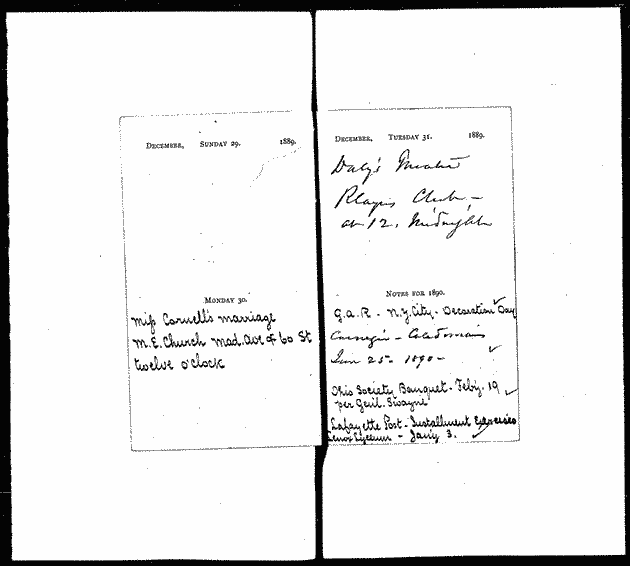 DECEMBER, SUNDAY 29. 1889.
MONDAY 30.
Miss Cornell's marriage
M.E. Church Mad. Ave & 60 St
twelve o'clock
DECEMBER, TUESDAY 31. 1889.
Daly's Theatre
Players Club -
at 12, Midnight
NOTES FOR 1890.
G.A.R - N.Y. City - Decoration Day
Carnegie - Caledonian
Jan 25- 1890 -
Ohio Society Banquet - Feby. 19
per Genl. Swayne
Lafayette Post - Installment Exercises
Lenox Lyceum - Jany 3.